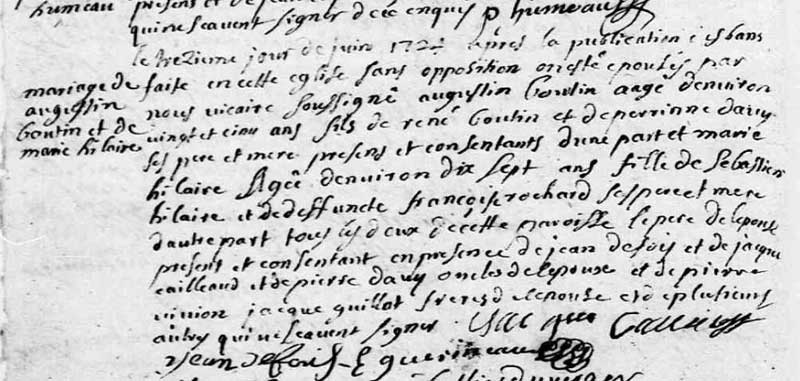 humeau presens et de jean
qui ne scavent signer de ce enquis p humeau
le trezieme jour de juin 172 apres la publication des bans
mariage de faite en cette eglise sans opposition on esté epousés par
augustin nous vicaire soussigné augustin boutin aagé denviron
boutin et de vingt et cinq ans fils de rené boutin et de perrinne davy
marie hilaire ses pere et mere presens et consentants dune part et marie
hilaire agée denviron dix sept ans fille de sebastien
hilaire et de deffuncte françoise rochard ses pere et mere
dautre part tous les deux de cette paroisse le pere de lepouse
present et consentant en presence de jean defois et de jacque
cailleaud et de pierre davy oncles de lepouse et de pierre
vivion jacque guillot freres de lepouse et de plusieurs
autres qui ne scavent signer
jean defois guerineau